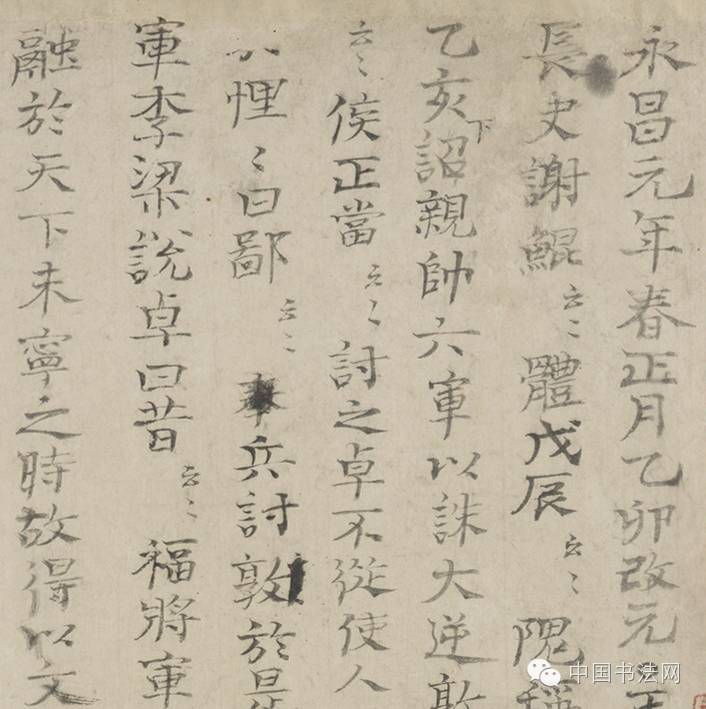 永昌元年春正月乙卯改元王
長史謝鯤云〻體戊辰云〻隗稱
乙亥下詔親帥六軍以誅大逆敦
云〻侯正當云〻討之卓不從使人
悝〻曰鄙云〻兵討敦於是
軍李梁說卓曰昔云〻福將軍
融於天下未寧之時故得以文
中国书法网